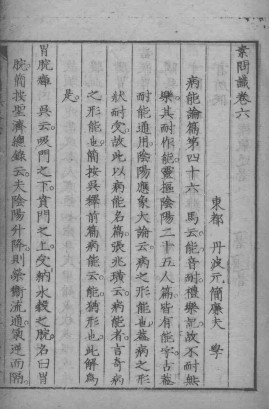 素問識卷六
東都 丹波元簡廉夫 學
病能論篇第四十六 馬云能音耐禮樂記故不耐無
樂其耐作能靈樞陰陽二十五人篇皆有能字古蓋
耐能通用陰陽應象大論云病之形能也蓋病之形
狀耐受故此以病能名篇張兆璜云病能者言奇病
之形能也簡按吳繹前篇病能云能猶形也此解為
是
胃脘癰 吳云吸門之下賁門之上受納水穀之脘名曰胃
脘簡按聖濟總錄云夫陰陽升降則榮衛流通氣逆而隔